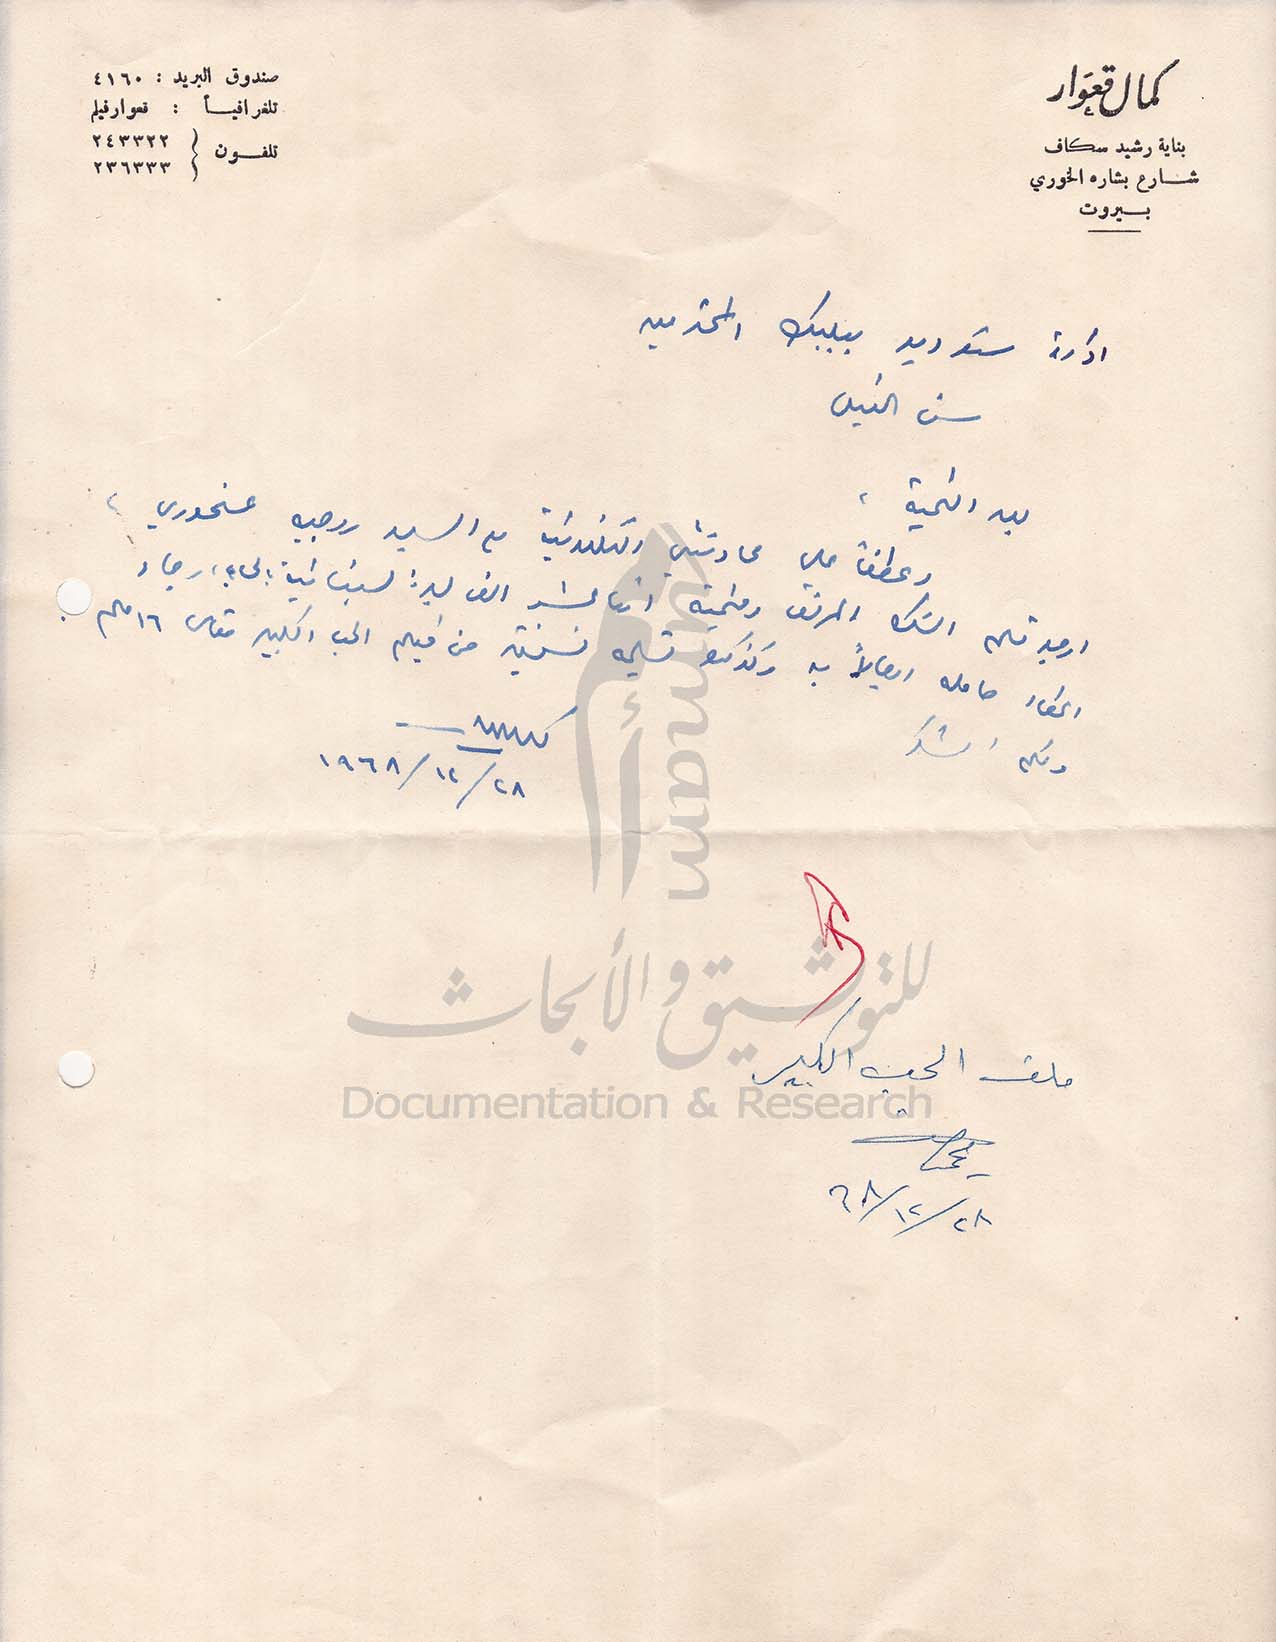 كمال قعوار
بناية رشيد سكاف
شارع بشاره الخوري
بيروت
صندوق البريد : ٤١٦٠
تلغرافياً : قعوارفيلم
تلفون ٢٤٣٣٢٢
٢٣٦٣٣٣
ادارة ستوديو بعلبك المحترمين
سن الفيل
بعد التحية ،
وعطفا على محادثتي التلفونية مع السيد روجيه عنحوري ،
ارجو تسلم الشك المرفق وقيمته اثنا عشر الف ليرة لبنانية رجاء
اعطاء حامله ايصالاً به وكذلك تسليمه نسختين من فيلم الحب الكبير مقاس ١٦ ملم
ولكم الشكر
١٩٦٨/١٢/٢٨
ملف الحب الكبير
٦٨/١٢/٢٨
umam
أمم
للتوثيق والأبحاث
Documentation & Research